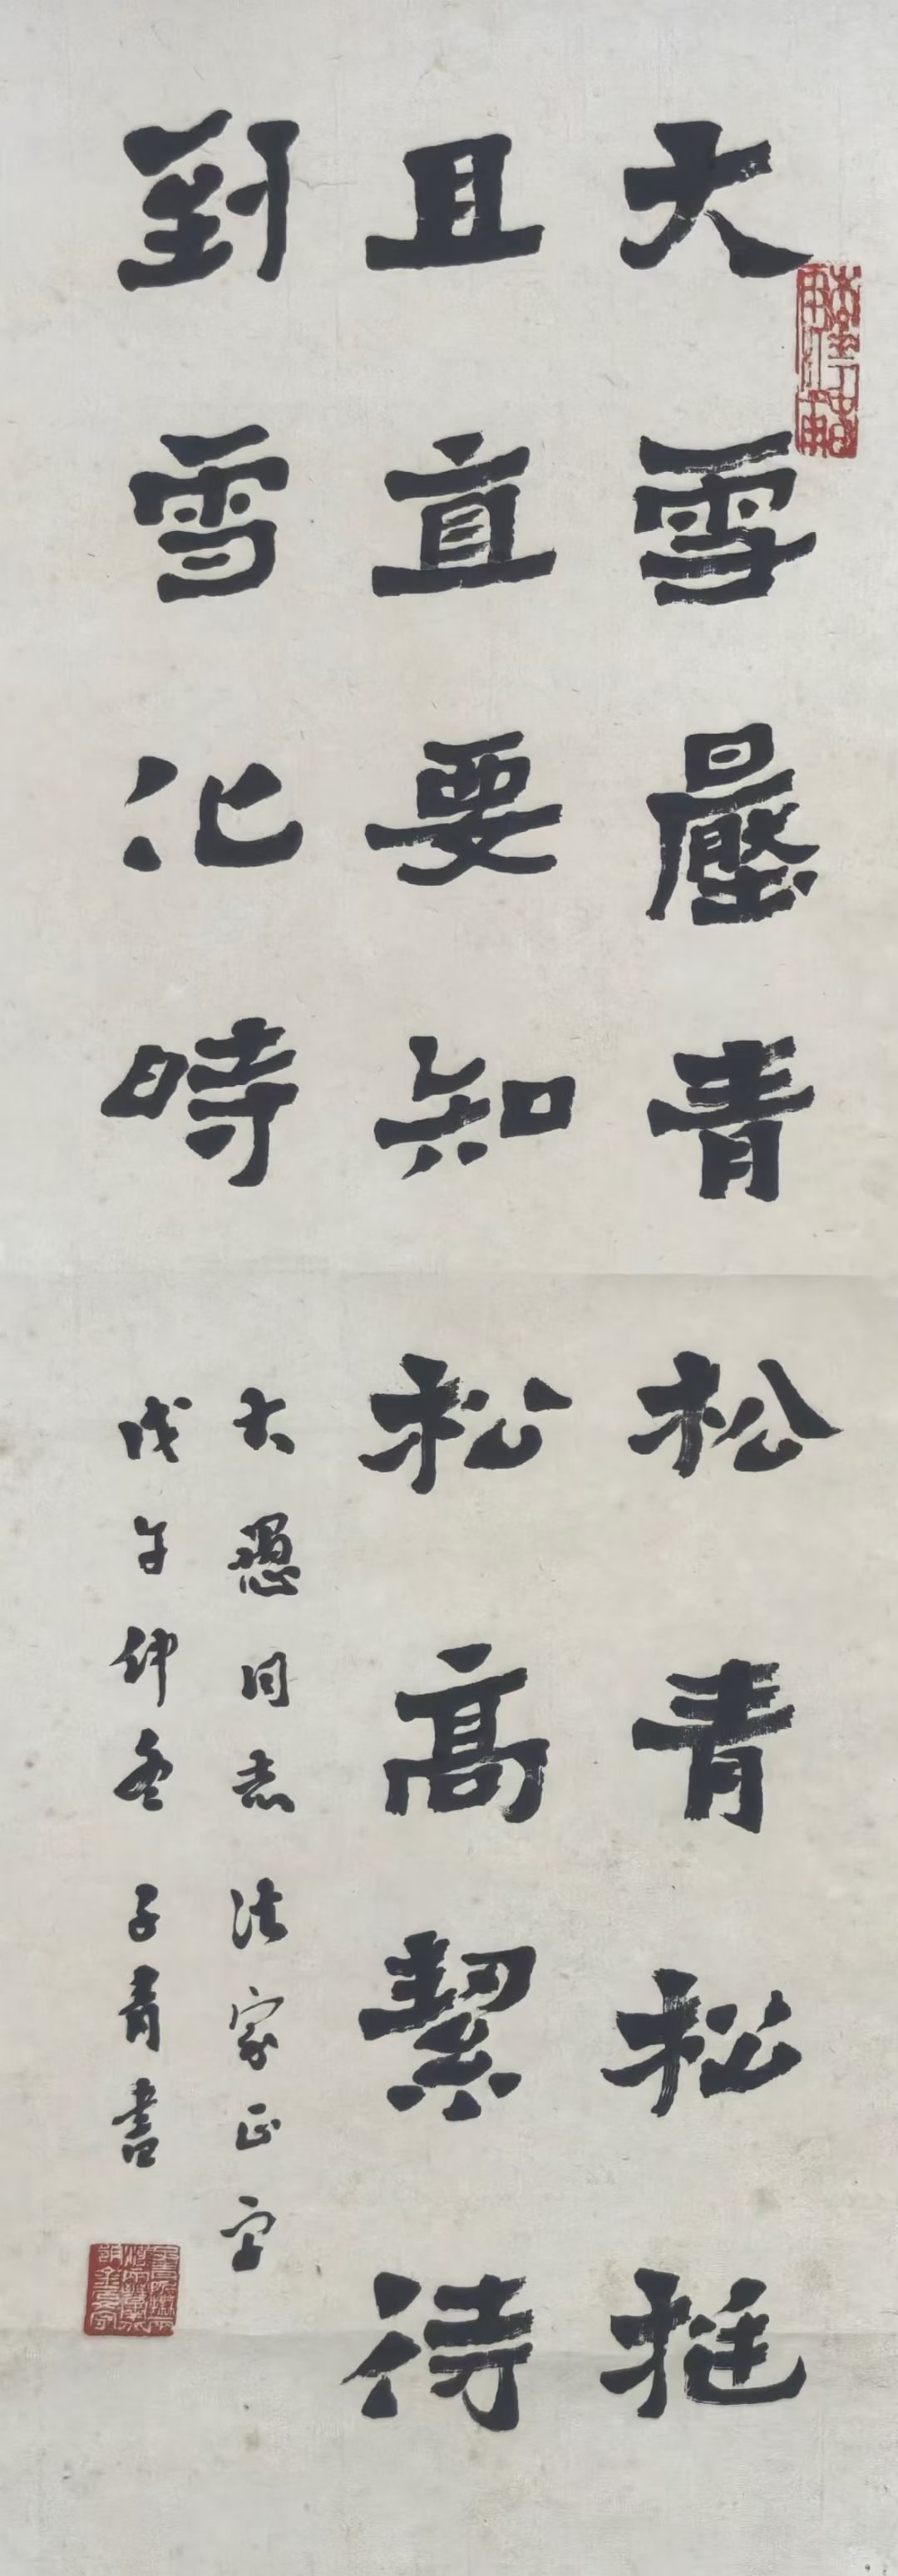 大雪壓青松青松挺
且直要知松高絜待
到雪化時
大愚同志法家正字
戊午仲冬子青書